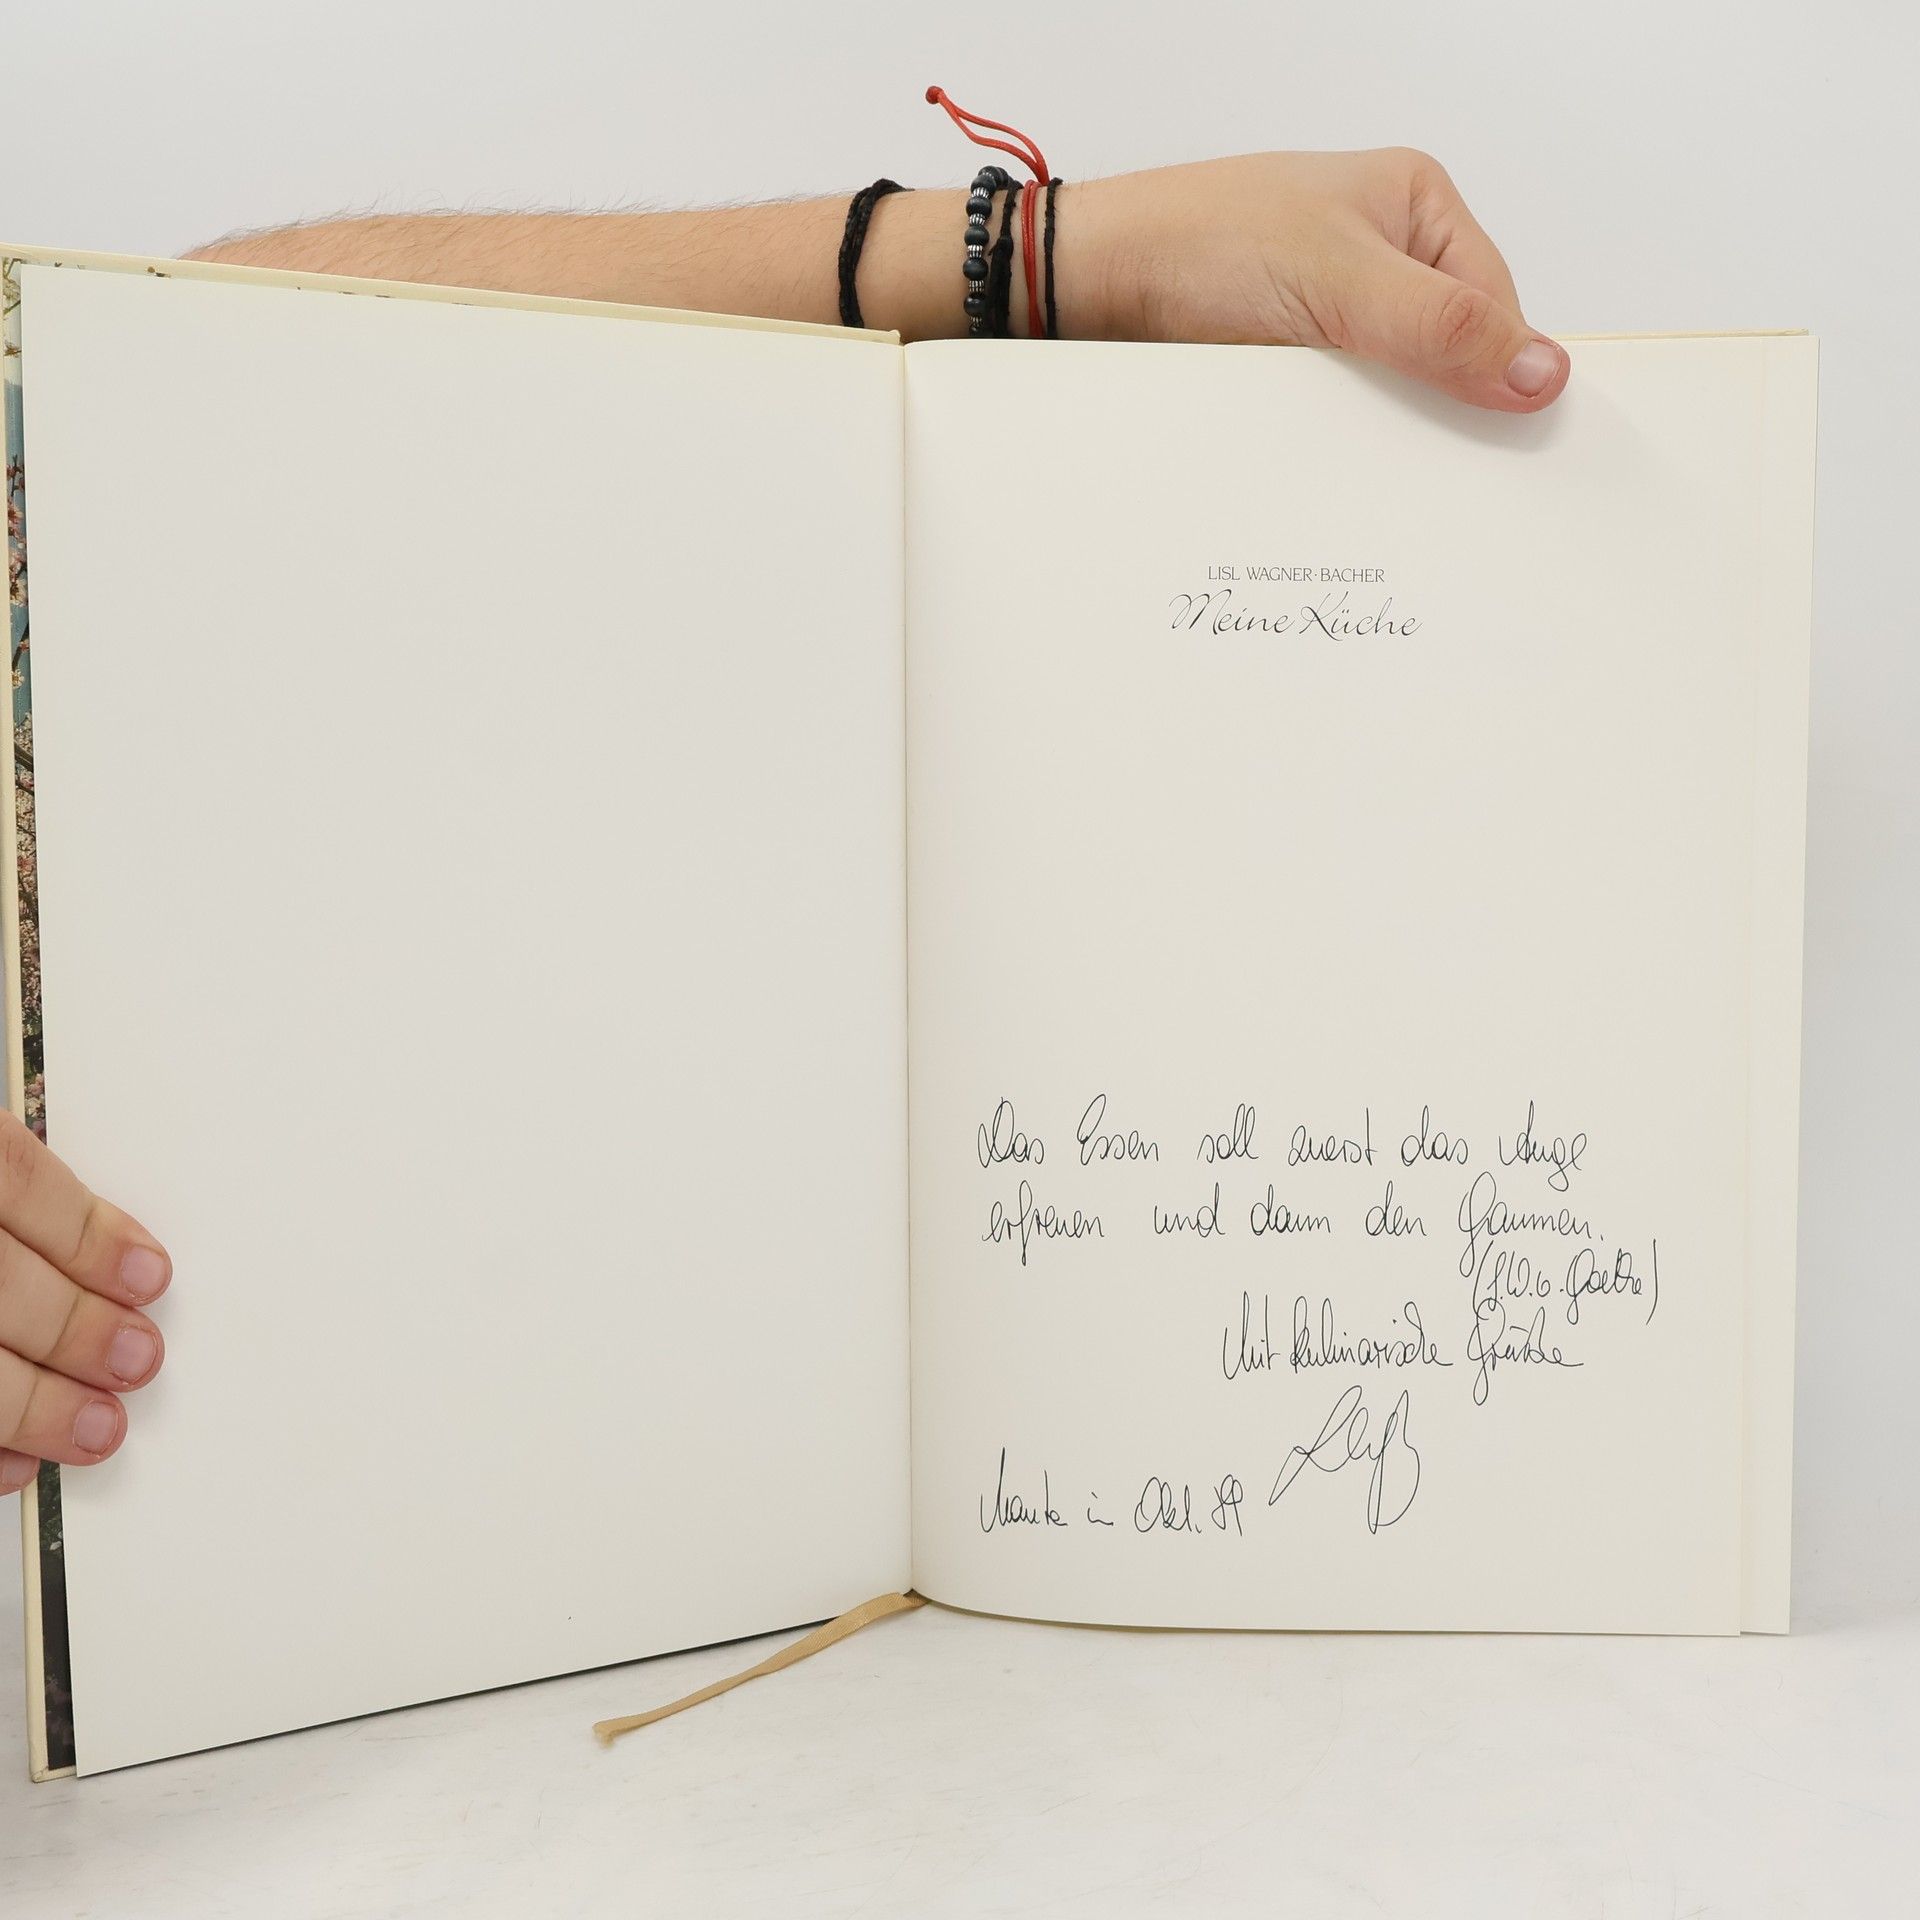 LISL WAGNER·BACHER
Meine Küche
Das Essen soll zuerst das Auge
erfreuen und dann den Gaumen.
(J.W.v. Goethe)
Mit kulinarische Grüße
Mautern in Okt. 89